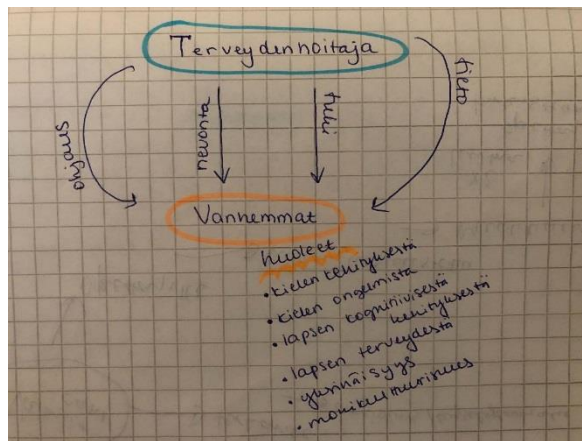 Terveydenhoitaja
ohjaus
neuvonta
tuki
tieto
Vanhemmat
huolet
• kielen kehityksestä
• kielen ongelmista
• lapsen kognitiivisestä
kehityksestä
• lapsen terveydestä
• yksinäisyys
• monikulttuurisuus